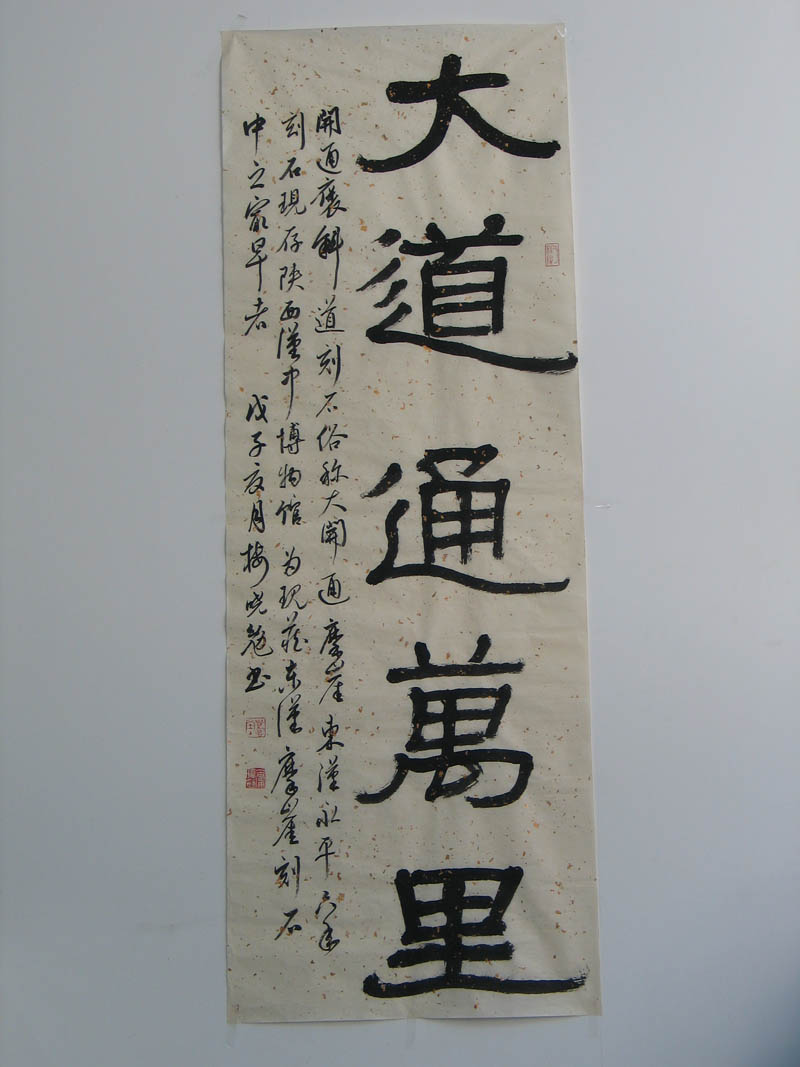 大道通萬里
開通褒斜道刻石俗称大開通摩崖東漢永平六年
刻石現存陕西漢中博物馆为現藏東漢摩崖刻石
中之最早者 戊子夏月梅晓艳书